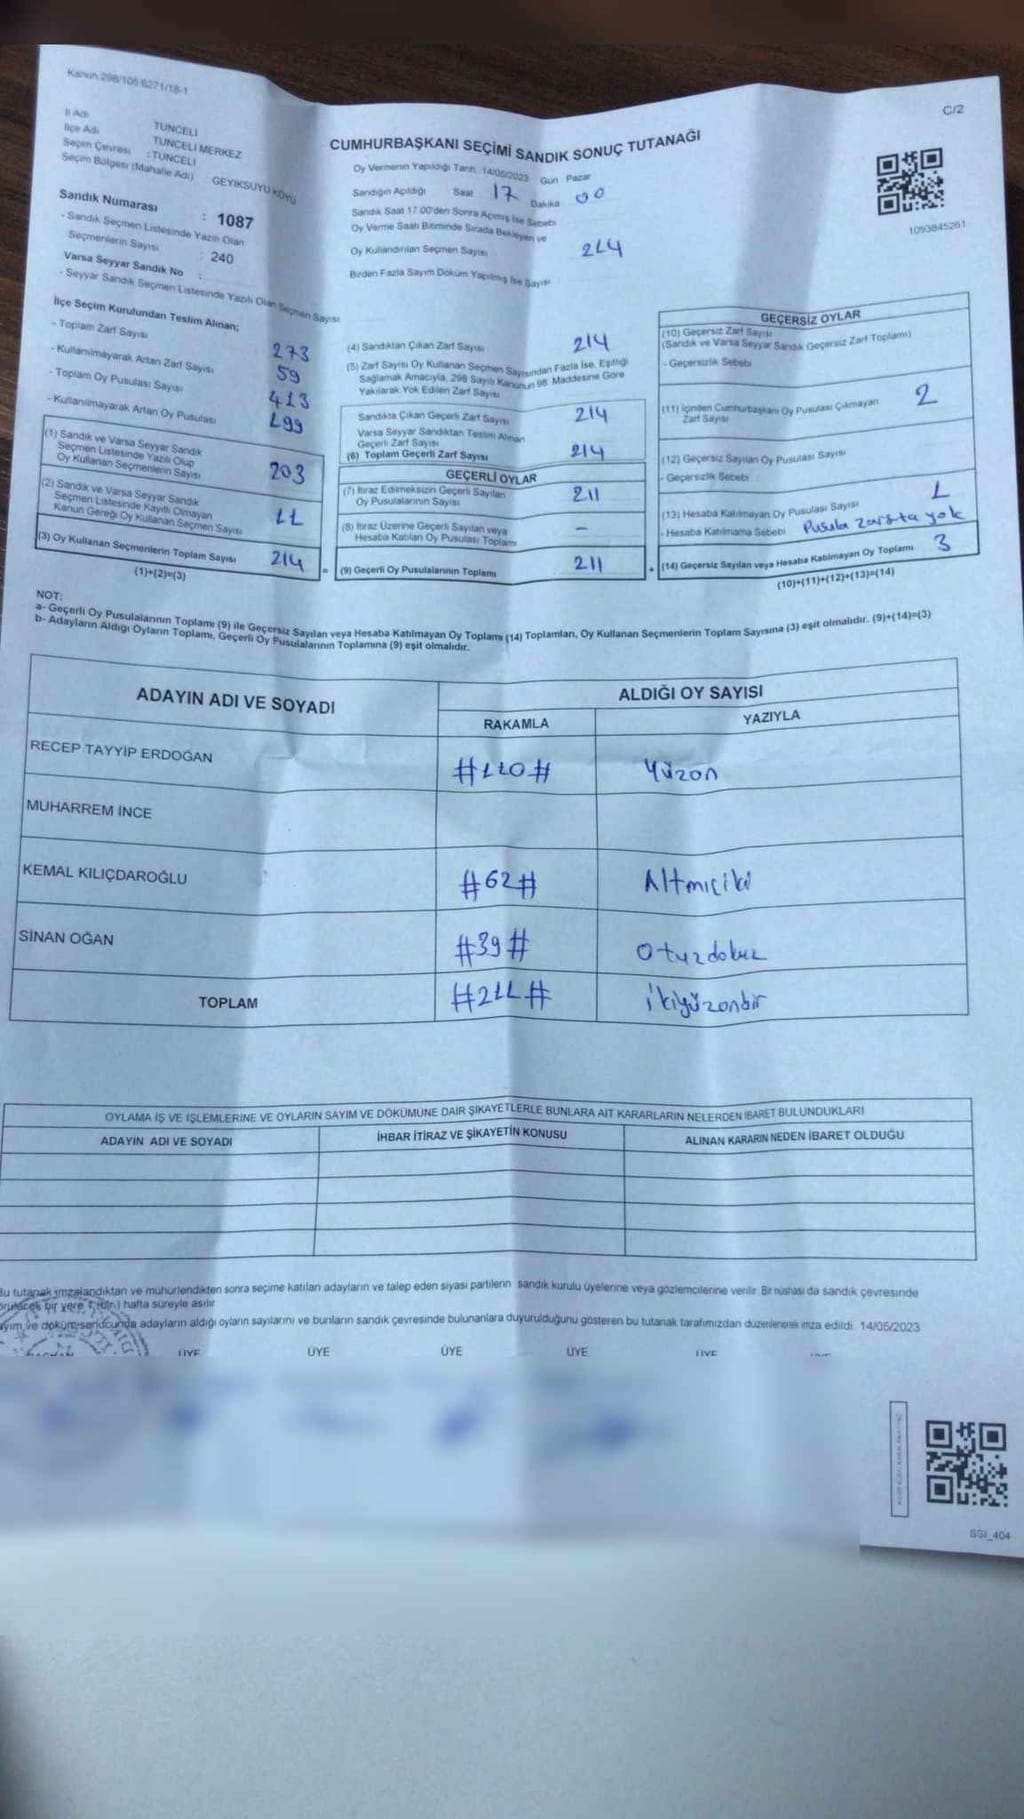 Kanun:298/105 6271/18-1
C/2
İl Adı TUNCELİ
İlçe Adı TUNCELİ MERKEZ
Seçim Çevresi :TUNCELİ
Seçim Bölgesi (Mahalle Adı) GEYİKSUYU KÖYÜ
CUMHURBAŞKANI SEÇİMİ SANDIK SONUÇ TUTANAĞI
Oy Vermenin Yapıldığı Tarih 14/05/2023 Gün Pazar
Sandığın Açıldığı Saat 17 Dakika 00
Sandık Saat 17.00'den Sonra Açılmış İse Sebebi
Oy Verme Saati Bitiminde Sırada Bekleyen ve
Oy Kullandırılan Seçmen Sayısı 214
Birden Fazla Sayım Döküm Yapılmış İse Sayısı
1093845261
Sandık Numarası : 1087
- Sandık Seçmen Listesinde Yazılı Olan
Seçmenlerin Sayısı : 240
Varsa Seyyar Sandık No :
- Seyyar Sandık Seçmen Listesinde Yazılı Olan Seçmen Sayısı
İlçe Seçim Kurulundan Teslim Alınan;
- Toplam Zarf Sayısı 273
- Kullanılmayarak Artan Zarf Sayısı 59
- Toplam Oy Pusulası Sayısı 413
- Kullanılmayarak Artan Oy Pusulası 199
(1) Sandık ve Varsa Seyyar Sandık
Seçmen Listesinde Yazılı Olup
Oy Kullanan Seçmenlerin Sayısı 203
(2) Sandık ve Varsa Seyyar Sandık
Seçmen Listesinde Kayıtlı Olmayan
Kanun Gereği Oy Kullanan Seçmen Sayısı 11
(3) Oy Kullanan Seçmenlerin Toplam Sayısı 214
(1)+(2)=(3)
(4) Sandıktan Çıkan Zarf Sayısı 214
(5) Zarf Sayısı Oy Kullanan Seçmen Sayısından Fazla İse, Eşitliği
Sağlamak Amacıyla, 298 Sayılı Kanunun 98. Maddesine Göre
Yakılarak Yok Edilen Zarf Sayısı
Sandıkta Çıkan Geçerli Zarf Sayısı 214
Varsa Seyyar Sandıktan Teslim Alınan
Geçerli Zarf Sayısı
(6) Toplam Geçerli Zarf Sayısı 214
GEÇERLİ OYLAR
(7) İtiraz Edilmeksizin Geçerli Sayılan
Oy Pusulalarının Sayısı 211
(8) İtiraz Üzerine Geçerli Sayılan veya
Hesaba Katılan Oy Pusulası Toplamı -
= (9) Geçerli Oy Pusulalarının Toplamı 211
GEÇERSİZ OYLAR
(10) Geçersiz Zarf Sayısı
(Sandık ve Varsa Seyyar Sandık Geçersiz Zarf Toplamı)
- Geçersizlik Sebebi
(11) İçinden Cumhurbaşkanı Oy Pusulası Çıkmayan
Zarf Sayısı 2
(12) Geçersiz Sayılan Oy Pusulası Sayısı
- Geçersizlik Sebebi
(13) Hesaba Katılmayan Oy Pusulası Sayısı 1
- Hesaba Katılmama Sebebi Pusula zarfta yok
+ (14) Geçersiz Sayılan veya Hesaba Katılmayan Oy Toplamı 3
(10)+(11)+(12)+(13)=(14)
NOT:
a- Geçerli Oy Pusulalarının Toplamı (9) ile Geçersiz Sayılan veya Hesaba Katılmayan Oy Toplamı (14) Toplamları, Oy Kullanan Seçmenlerin Toplam Sayısına (3) eşit olmalıdır. (9)+(14)=(3)
b- Adayların Aldığı Oyların Toplamı, Geçerli Oy Pusulalarının Toplamına (9) eşit olmalıdır.
ADAYIN ADI VE SOYADI ALDIĞI OY SAYISI
RAKAMLA YAZIYLA
RECEP TAYYİP ERDOĞAN #110# Yüzon
MUHARREM İNCE
KEMAL KILIÇDAROĞLU #62# Altmıçiki
SİNAN OĞAN #39# Otuzdokuz
TOPLAM #211# İkiyüzonbir
OYLAMA İŞ VE İŞLEMLERİNE VE OYLARIN SAYIM VE DÖKÜMÜNE DAİR ŞİKAYETLERLE BUNLARA AİT KARARLARIN NELERDEN İBARET BULUNDUKLARI
ADAYIN ADI VE SOYADI İHBAR İTİRAZ VE ŞİKAYETİN KONUSU ALINAN KARARIN NEDEN İBARET OLDUĞU
Bu tutanak imzalandıktan ve mühürlendikten sonra seçime katılan adayların ve talep eden siyasi partilerin sandık kurulu üyelerine veya gözlemcilerine verilir. Bir nüshası da sandık çevresinde
görülecek bir yere 1 (bir) hafta süreyle asılır
sayım ve döküm sonucunda adayların aldığı oyların sayılarını ve bunların sandık çevresinde bulunanlara duyurulduğunu gösteren bu tutanak tarafımızdan düzenlenerek imza edildi. 14/05/2023
ÜYE ÜYE ÜYE ÜYE ÜYE
SSI_404